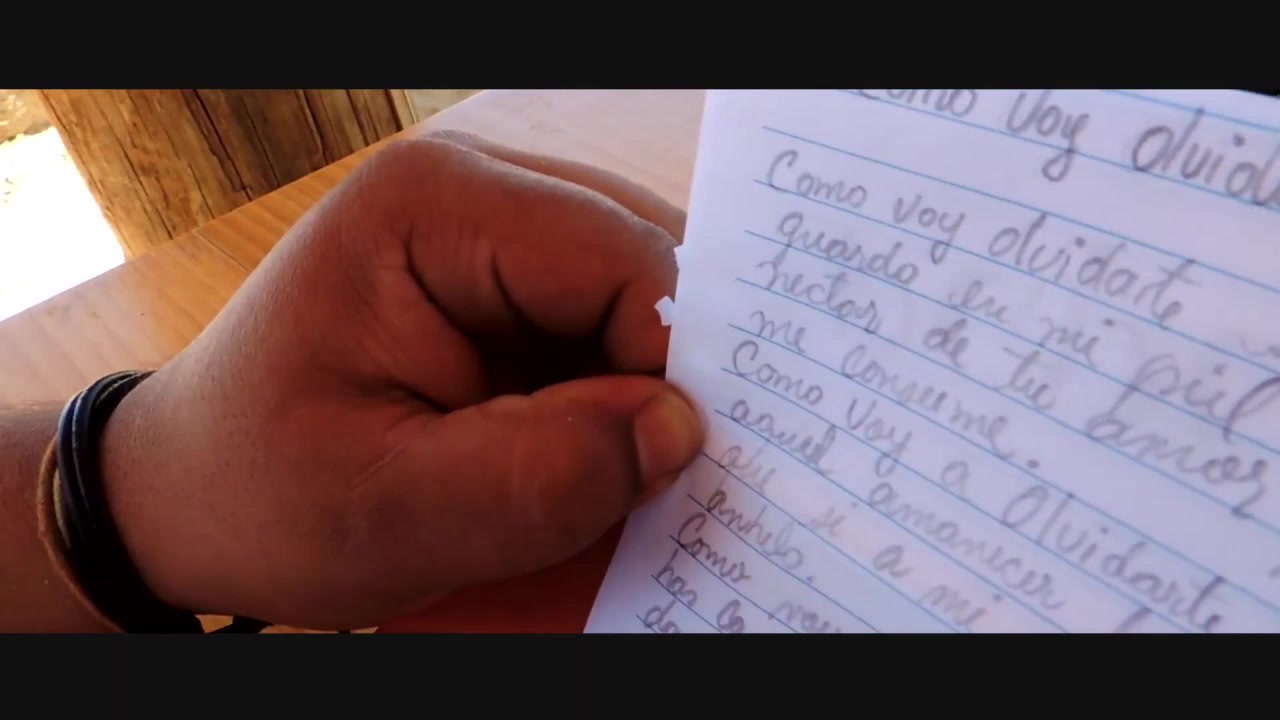 Como voy olvida
Como voy olvidarte
guardo en mi piel
nectar de tu amor
me consume.
Como voy a Olvidarte
aquel amanecer
si a mi
anhelo.
Como